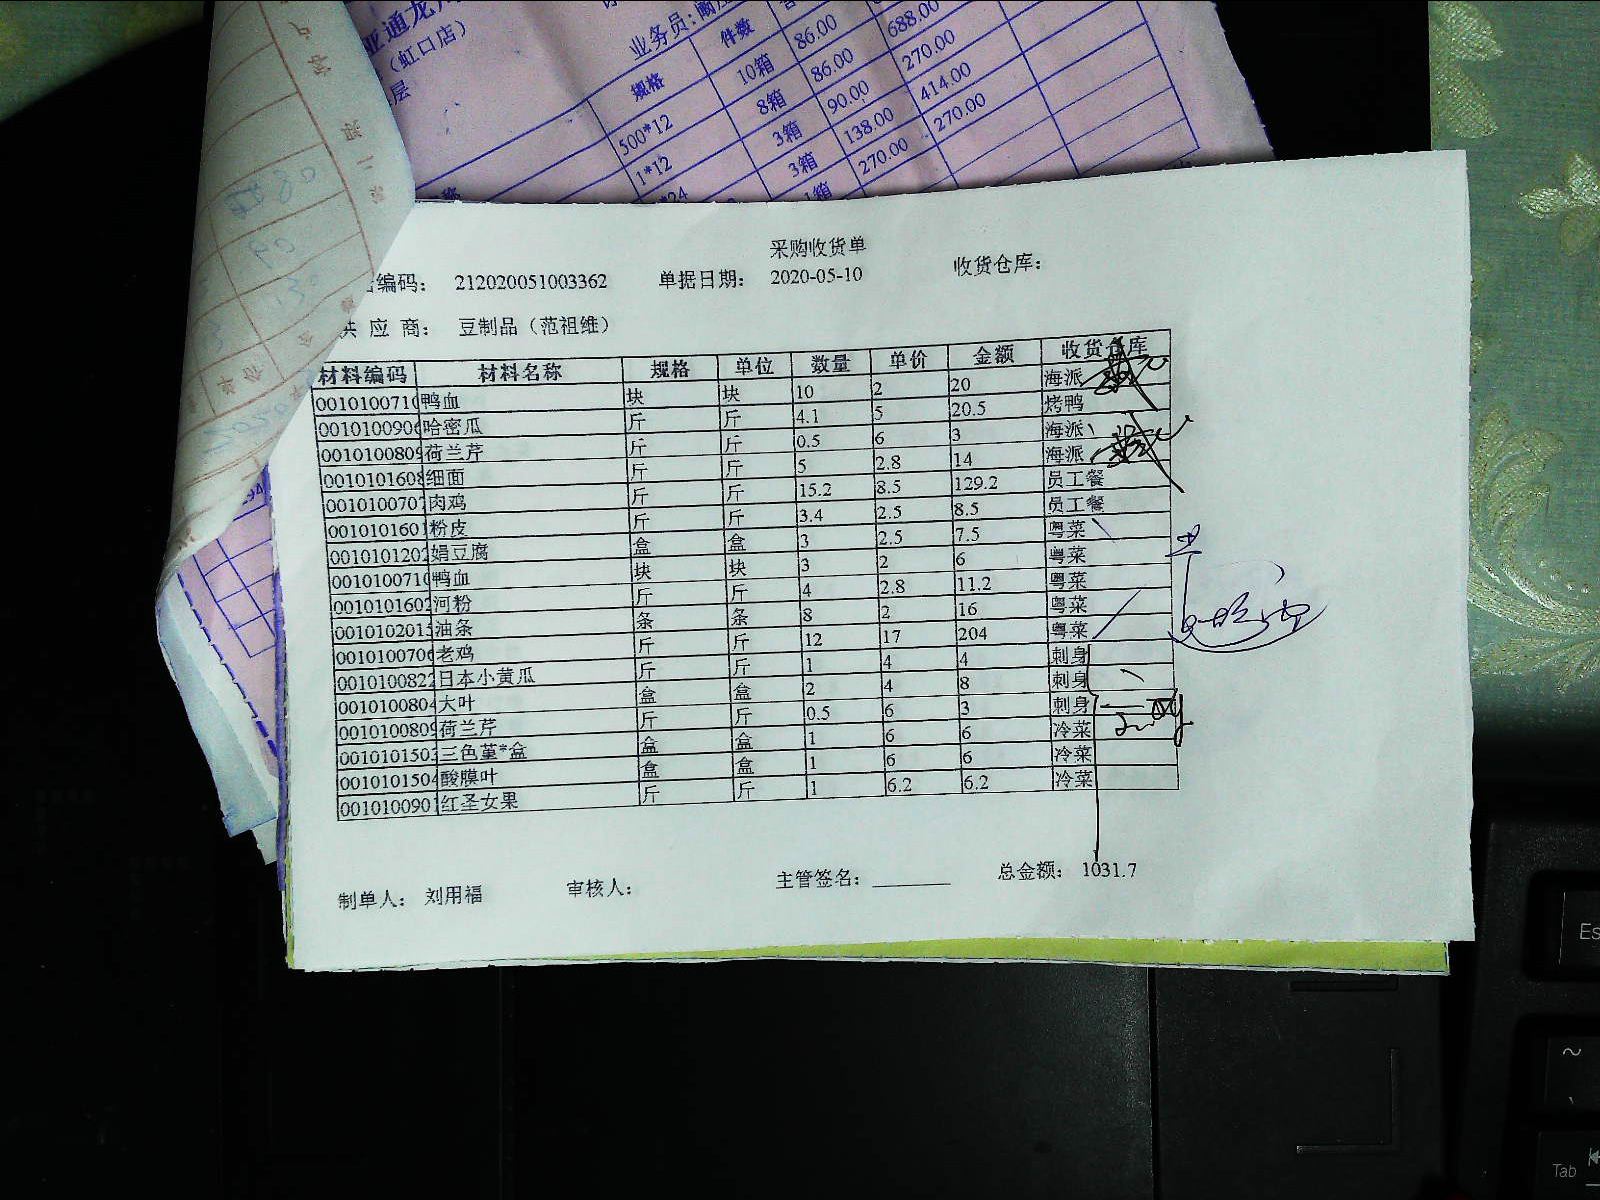 亚通龙
（虹口店）
层
业务员：
规格 件数
500*12 10箱 86.00 688.00
1*12 8箱 86.00 270.00
*24 3箱 90.00 414.00
3箱 138.00 270.00
1箱 270.00
采购收货单
编码： 212020051003362 单据日期： 2020-05-10 收货仓库：
供 应 商： 豆制品（范祖维）
材料编码 材料名称 规格 单位 数量 单价 金额 收货仓库
0010100710 鸭血 块 块 10 2 20 海派
0010100906 哈密瓜 斤 斤 4.1 5 20.5 烤鸭
0010100809 荷兰芹 斤 斤 0.5 6 3 海派
0010101608 细面 斤 斤 5 2.8 14 海派
0010100707 肉鸡 斤 斤 15.2 8.5 129.2 员工餐
0010101601 粉皮 斤 斤 3.4 2.5 8.5 员工餐
0010101202 娟豆腐 盒 盒 3 2.5 7.5 粤菜
0010100710 鸭血 块 块 3 2 6 粤菜
0010101602 河粉 斤 斤 4 2.8 11.2 粤菜
0010102015 油条 条 条 8 2 16 粤菜
0010100706 老鸡 斤 斤 12 17 204 粤菜
0010100822 日本小黄瓜 斤 斤 1 4 4 刺身
0010100804 大叶 盒 盒 2 4 8 刺身
0010100809 荷兰芹 斤 斤 0.5 6 3 刺身
001010150 三色堇*盒 盒 盒 1 6 6 冷菜
0010101504 酸膜叶 盒 盒 1 6 6 冷菜
001010090 红圣女果 斤 斤 1 6.2 6.2 冷菜
制单人： 刘用福 审核人： 主管签名： 总金额： 1031.7
Tab